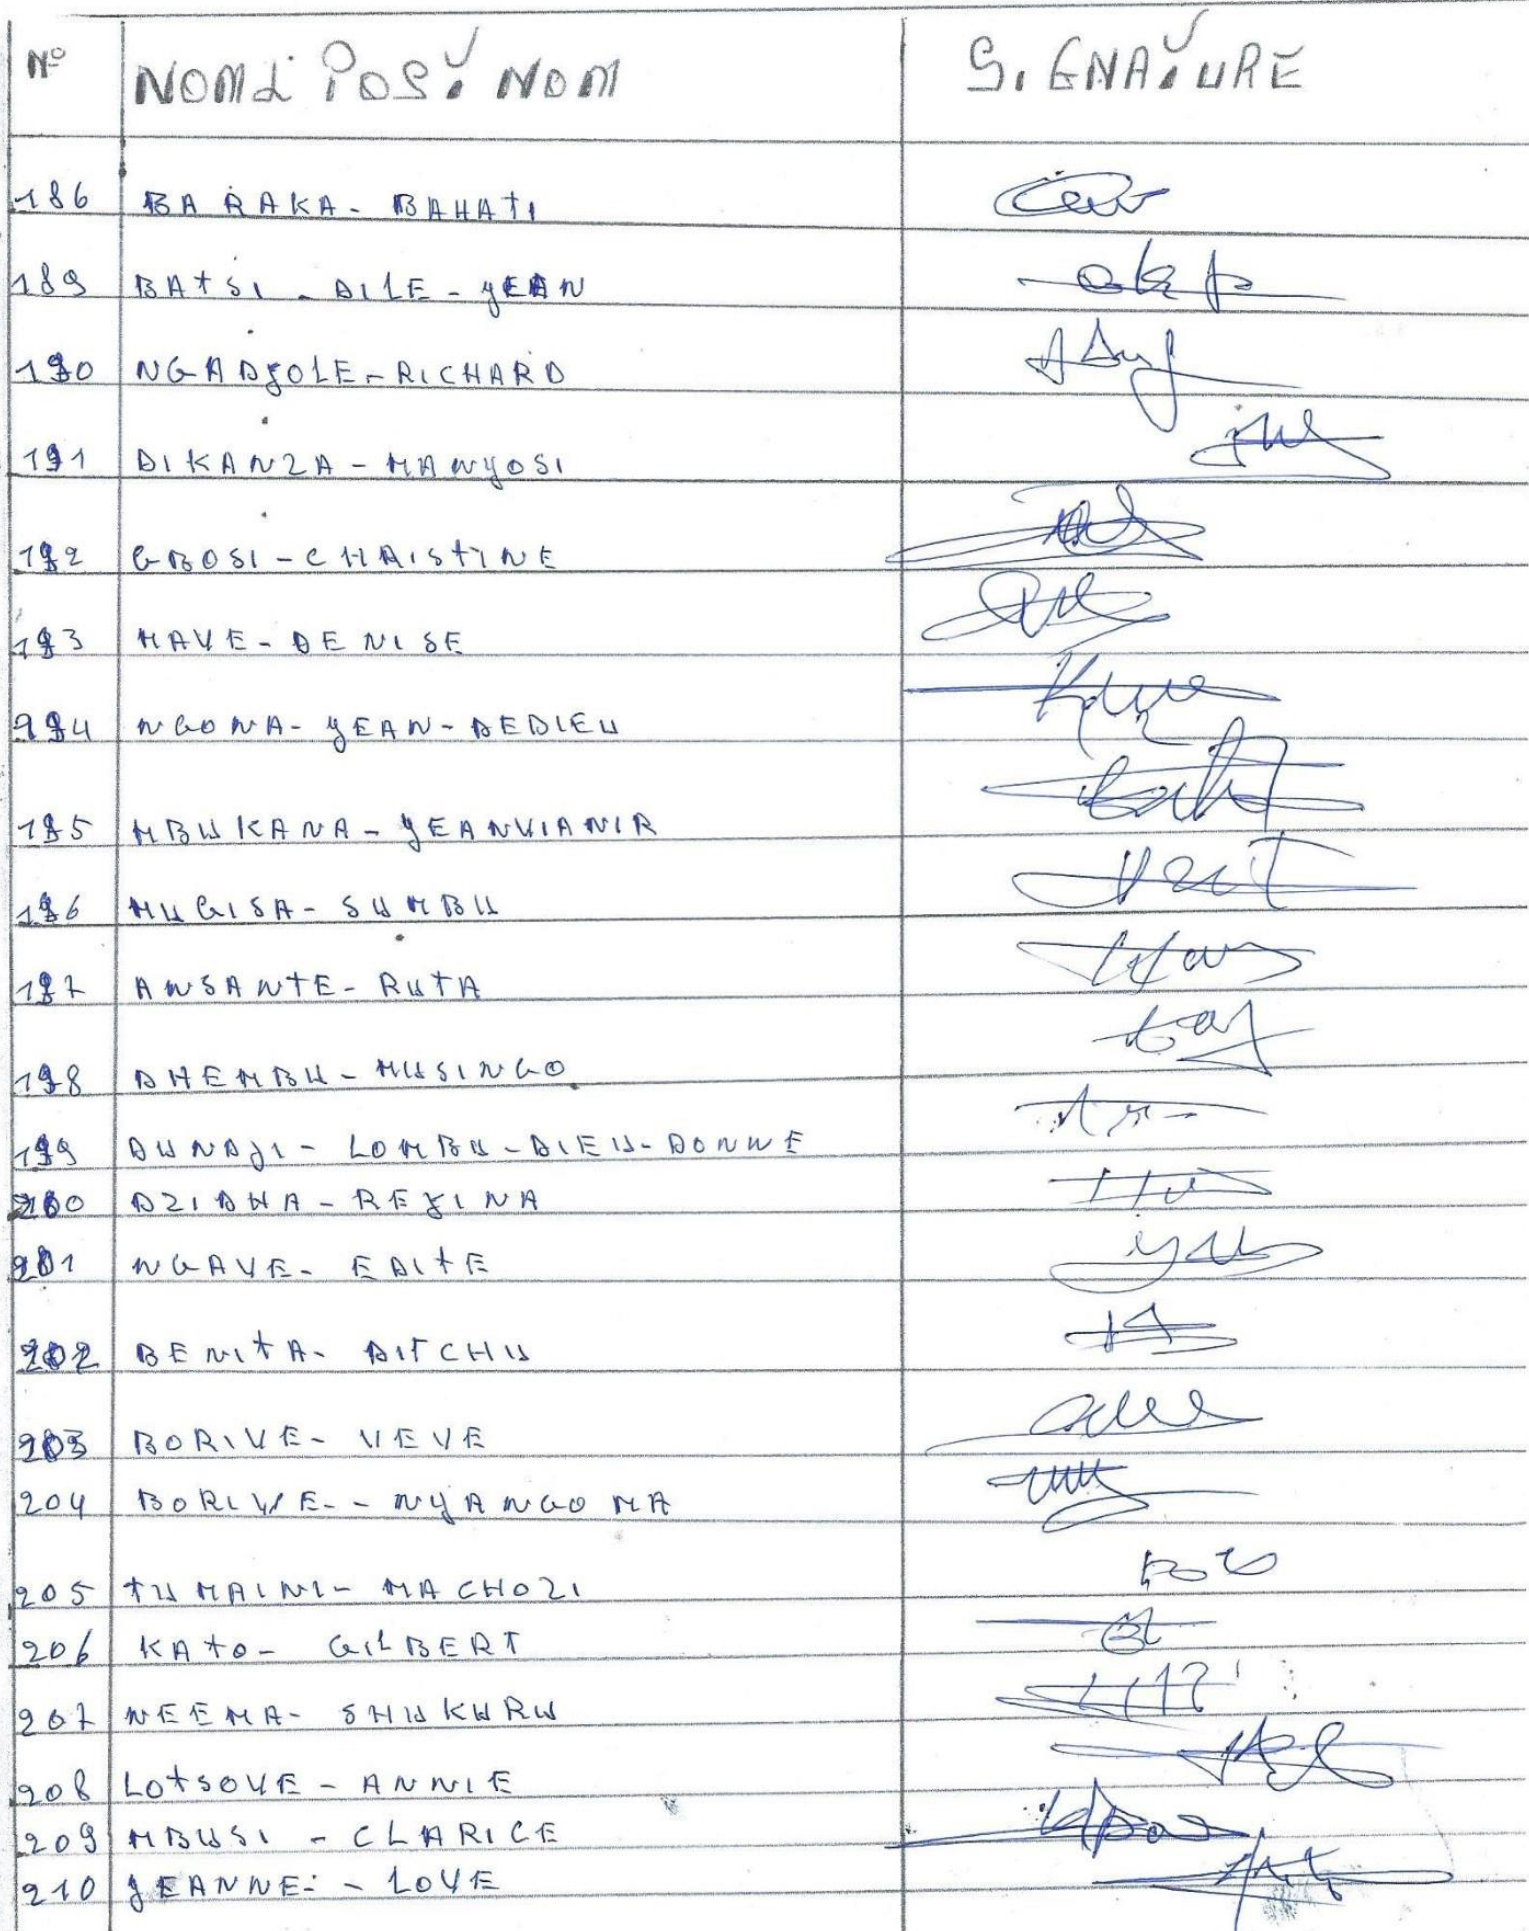 N° NOM & POST NOM SIGNATURE
186 BARAKA - BAHATI
189 BATSI - DILE - JEAN
190 NGADJOLE - RICHARD
191 DIKANZA - MANYOSI
192 GBOSI - CHRISTINE
193 MAVE - DENISE
194 NGONA - JEAN - DEDIEU
195 MBUKANA - JEANVIANIR
196 MUGISA - SUMBU
197 ANSANTE - RUTA
198 DHEMBU - MUSINGO
199 DUNDJI - LOMBU - DIEU - DONNE
200 DZIDHA - REJINA
201 NGAVE - EDITE
202 BENITA - DITCHU
203 BORIVE - VEVE
204 BORIVE - NYANGOMA
205 TUMAINI - MACHOZI
206 KATO - GILBERT
207 NEEMA - SHUKURU
208 LOTSOVE - ANNIE
209 MBUSI - CLARICE
210 JEANNE - LOVE